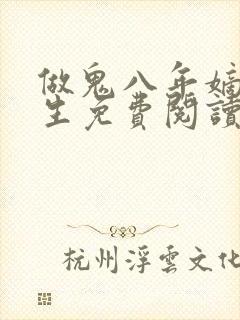 做鬼八年嫡
生免費閱讀
杭州浮雲文化